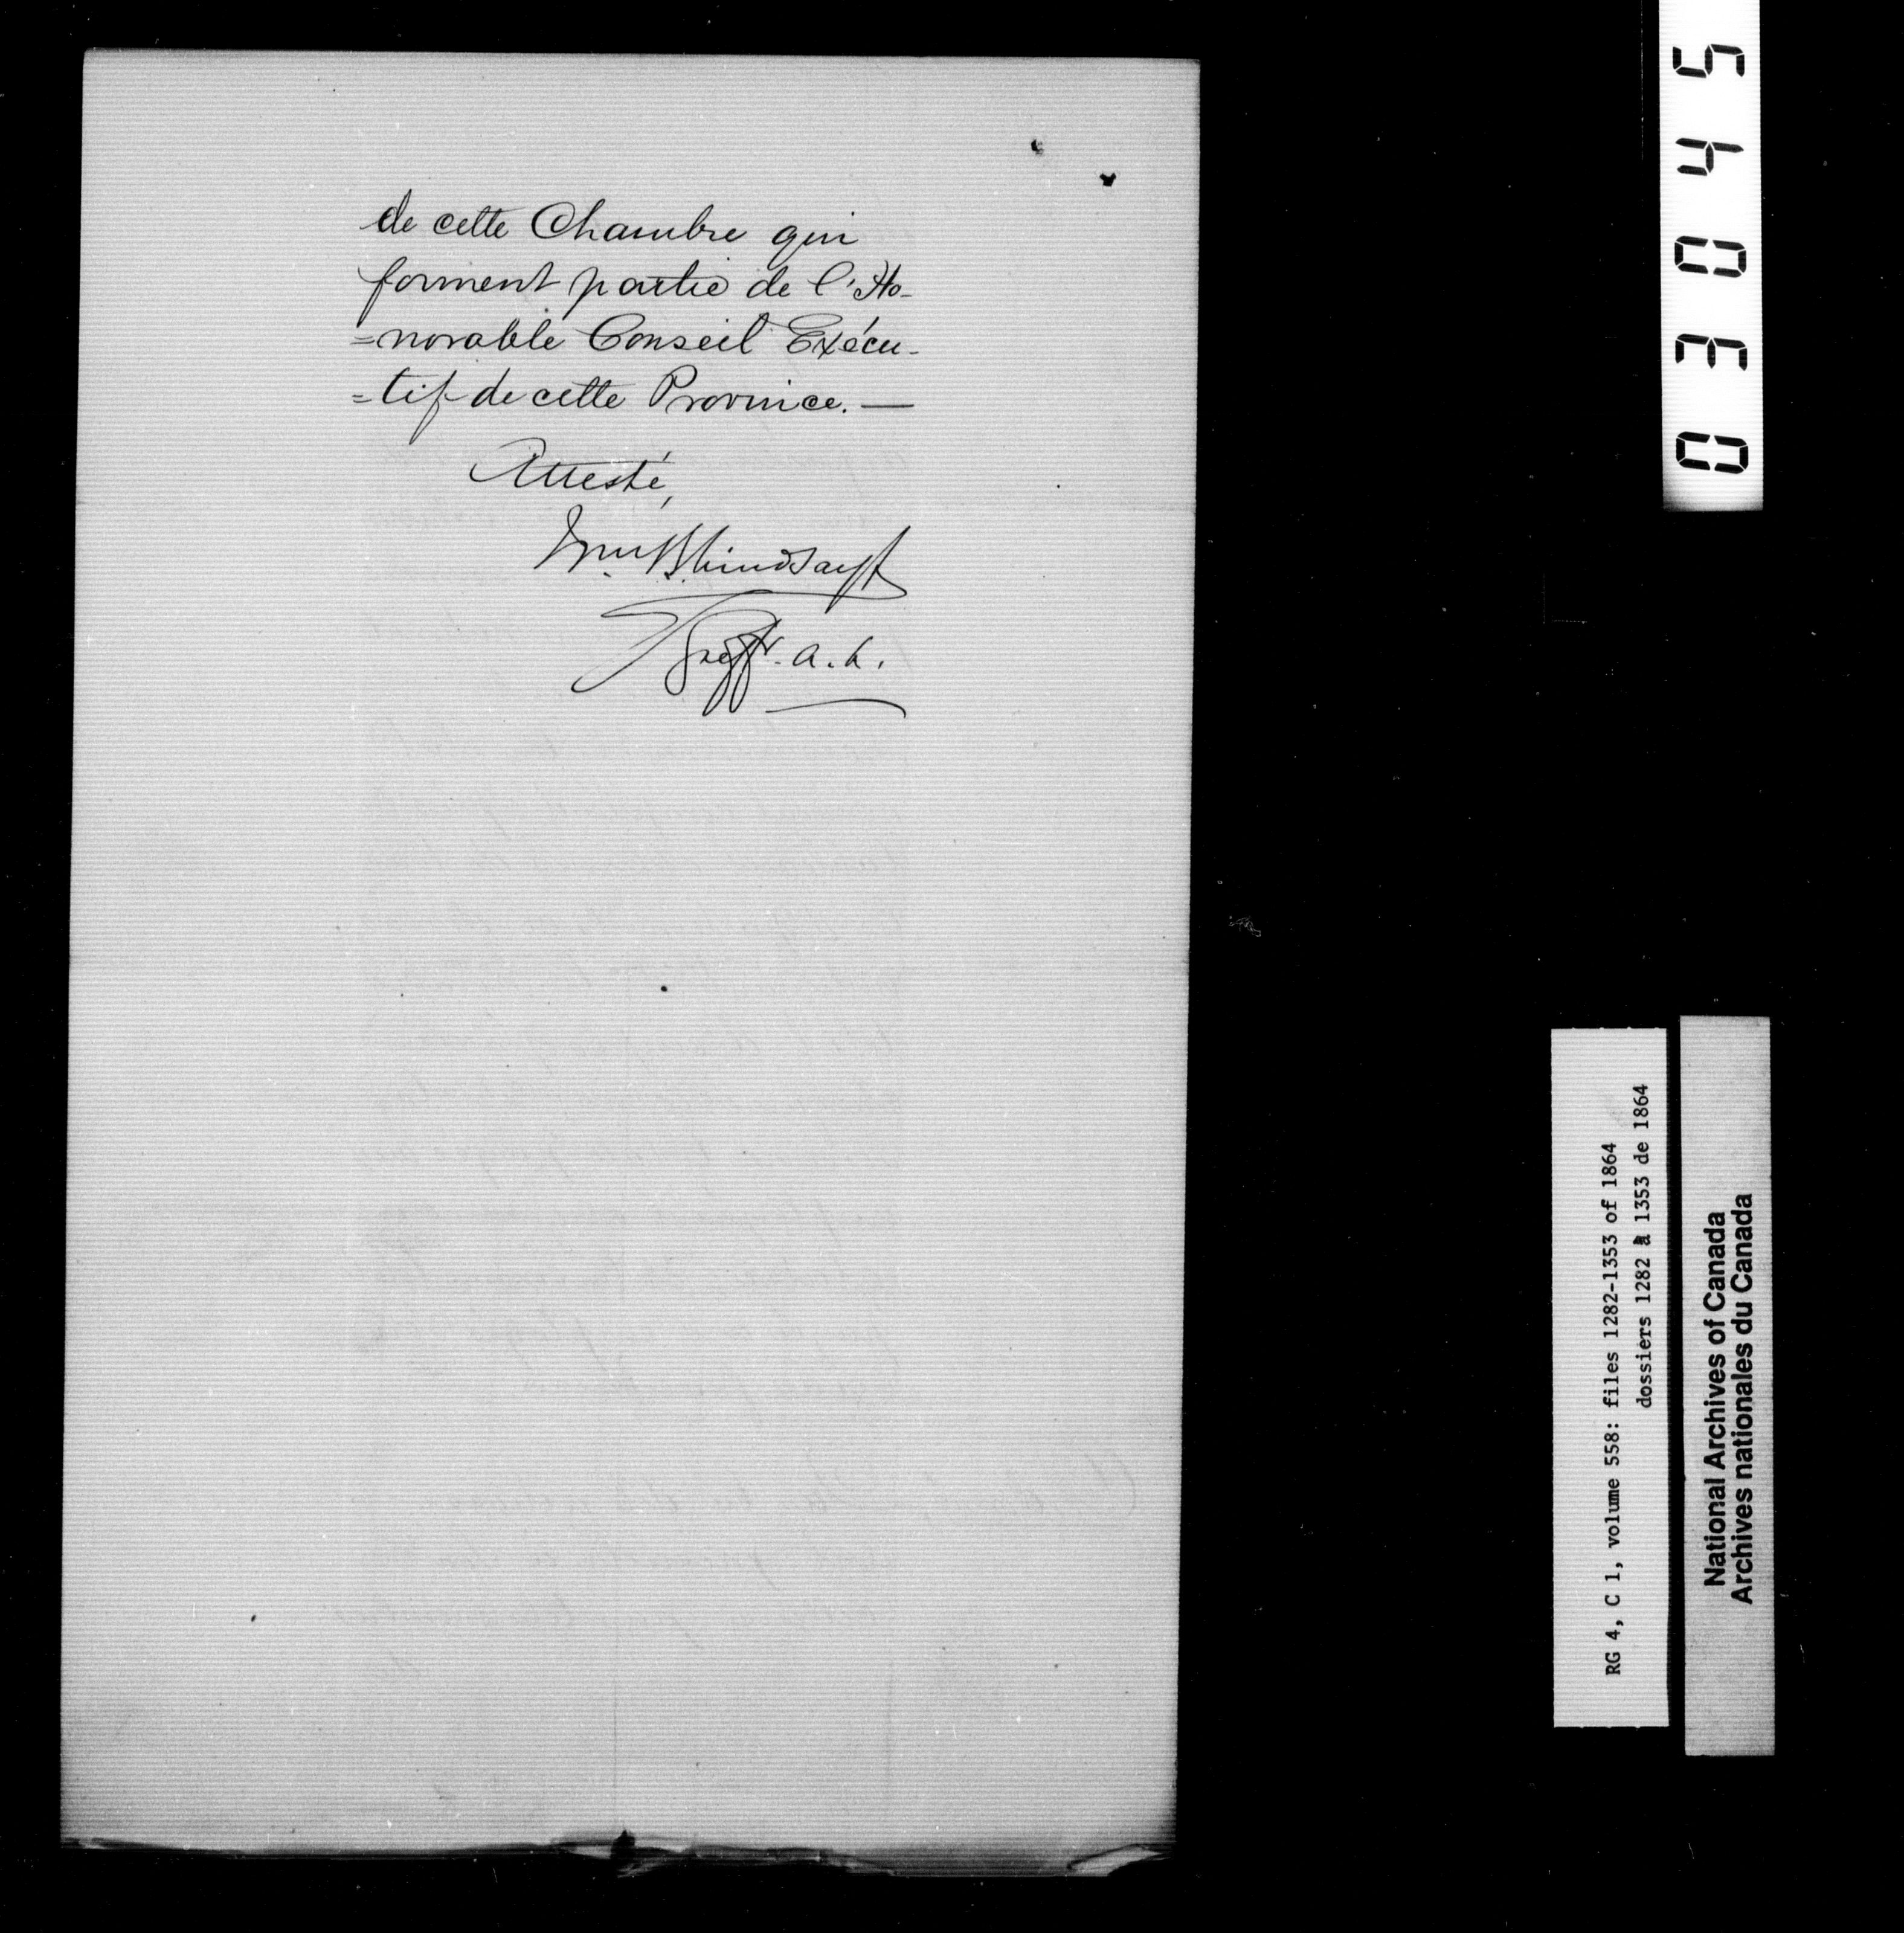 de cette Chambre qui
forment partie de l'Ho-
=norable Conseil Exécu-
=tif de cette Province. —
Attesté,
Wm B Lindsay
Greffr. A. L.
03045
RG 4, C 1, volume 558: files 1282-1353 of 1864
dossiers 1282 à 1353 de 1864
National Archives of Canada
Archives nationales du Canada